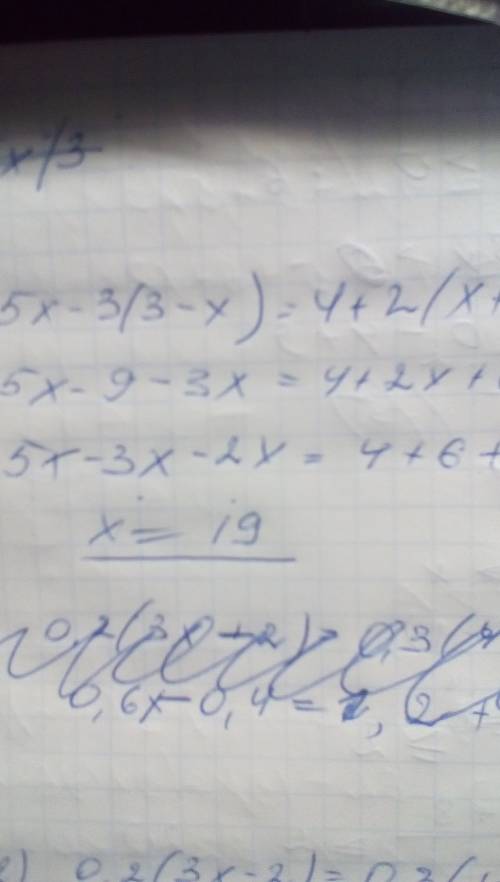 x/3
5x-3(3-x)=4+2(x+
5x-9-3x=4+2x+
5x-3x-2x=4+6+
x=19
0,2(3x-2)=0,3(4
0,6x-0,4=1,2+
2) 0,2(3x-2)=0,3(